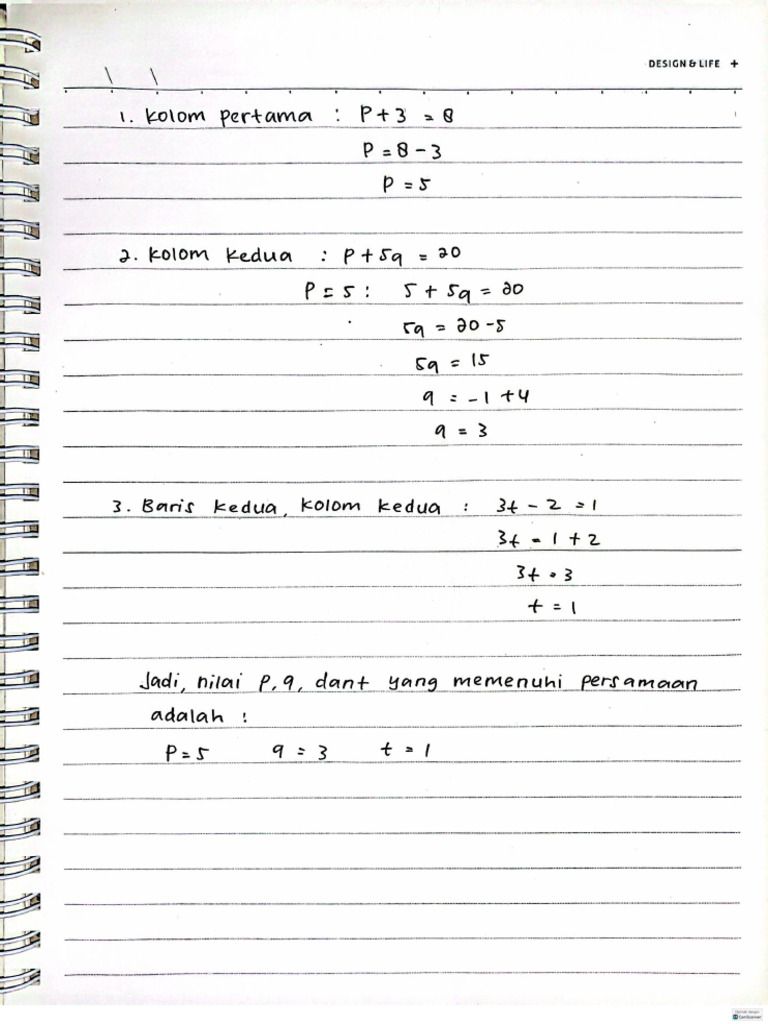 DESIGN & LIFE +
1. Kolom pertama : P + 3 = 8
P = 8 - 3
P = 5
2. Kolom kedua : P + 5q = 20
P = 5 : 5 + 5q = 20
5q = 20 - 5
5q = 15
q = -1 + 4
q = 3
3. Baris kedua, kolom kedua : 3t - 2 = 1
3t = 1 + 2
3t = 3
t = 1
Jadi, nilai P, q, dan t yang memenuhi persamaan
adalah :
P = 5 q = 3 t = 1
CamScanner